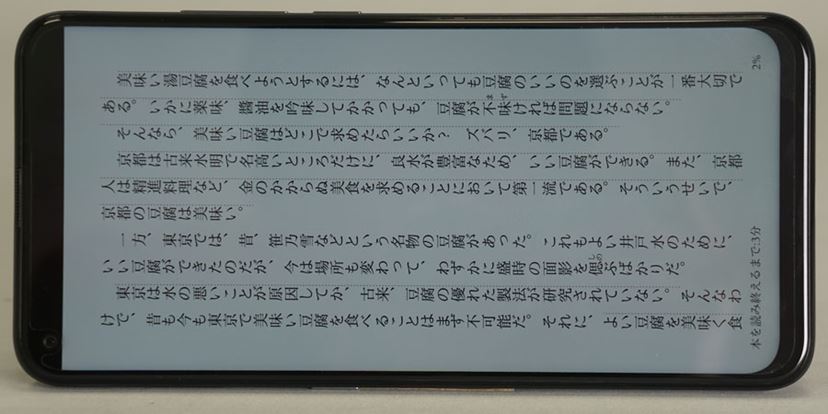 美味い湯豆腐を食べようとするには、なんといっても豆腐のいいのを選ぶことが一番大切で
ある。いかに薬味、醤油を吟味してかかっても、豆腐が不味ければ問題にならない。
まず
そんなら、美味い豆腐はどこで求めたらいいか? ズバリ、京都である。
京都は古来水明で名高いところだけに、良水が豊富なため、いい豆腐ができる。また、京都
人は精進料理など、金のかからぬ美食を求めることにおいて第一流である。そういうせいで、
京都の豆腐は美味い。
一方、東京では、昔、笹乃雪などという名物の豆腐があった。これもよい井戸水のために、
いい豆腐ができたのだが、今は場所も変わって、わずかに盛時の面影を偲ぶばかりだ。
しの
東京は水の悪いことが原因してか、古来、豆腐の優れた製法が研究されていない。そんなわ
けで、昔も今も東京で美味い豆腐を食べることはまず不可能だ。それに、よい豆腐を美味く食
本を読み終えるまで:3分
2%